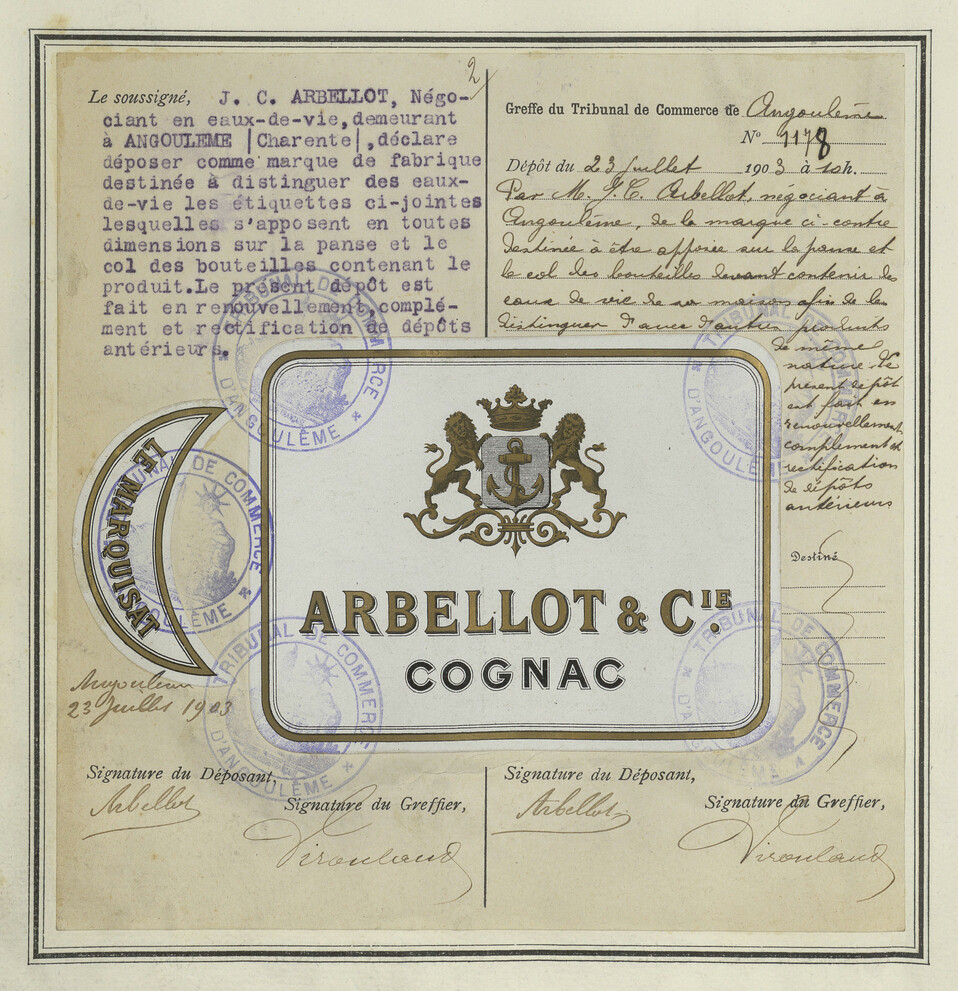 2
Le soussigné, J. C. ARBELLOT, Négo-
ciant en eaux-de-vie, demeurant
à ANGOULEME |Charente|, déclare
déposer comme marque de fabrique
destinée à distinguer des eaux-
de-vie les étiquettes ci-jointes
lesquelles s'apposent en toutes
dimensions sur la panse et le
col des bouteilles contenant le
produit. Le présent dépôt est
fait en renouvellement, complé-
ment et rectification de dépôts
antérieurs.
Greffe du Tribunal de Commerce de Angoulême
N° 1178
Dépôt du 23 Juillet 1903 à 10h.
Par M. J. C. Arbellot, négociant à
Angoulême, de la marque ci-contre
destinée à être apposée sur la panse et
le col des bouteilles devant contenir des
eaux de vie de sa maison afin de les
distinguer d'avec d'autres produits
de même
nature. Le
présent dépôt
est fait en
renouvellement
complément et
rectification
de dépôts
antérieurs
Destiné
LE MARQUISAT
ARBELLOT & CIE.
COGNAC
TRIBUNAL DE COMMERCE
D'ANGOULÊME
TRIBUNAL DE COMMERCE
D'ANGOULÊME
TRIBUNAL DE COMMERCE
ANGOULÊME
TRIBUNAL DE COMMERCE
D'ANGOULÊME
TRIBUNAL DE COMMERCE
D'ANGOULÊME
Angoulême
23 Juillet 1903
Signature du Déposant,
Arbellot
Signature du Greffier,
Signature du Déposant,
Arbellot
Signature du Greffier,